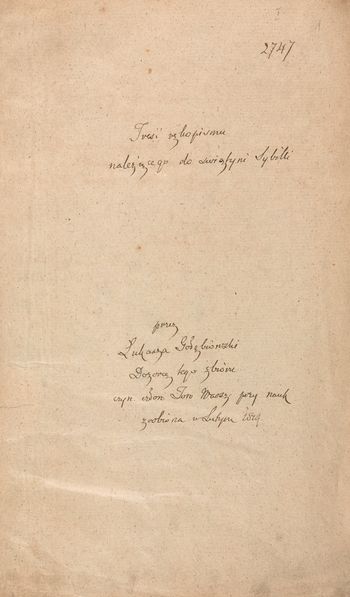 2747
Treść rękopismu
należącego do świątyni Sybilli
przez
Łukasza Gołębiowski
Dozorcę tego zbioru
czyn. człon. Tow. Warsz. przy. nauk
zrobiona w Lutym 1819